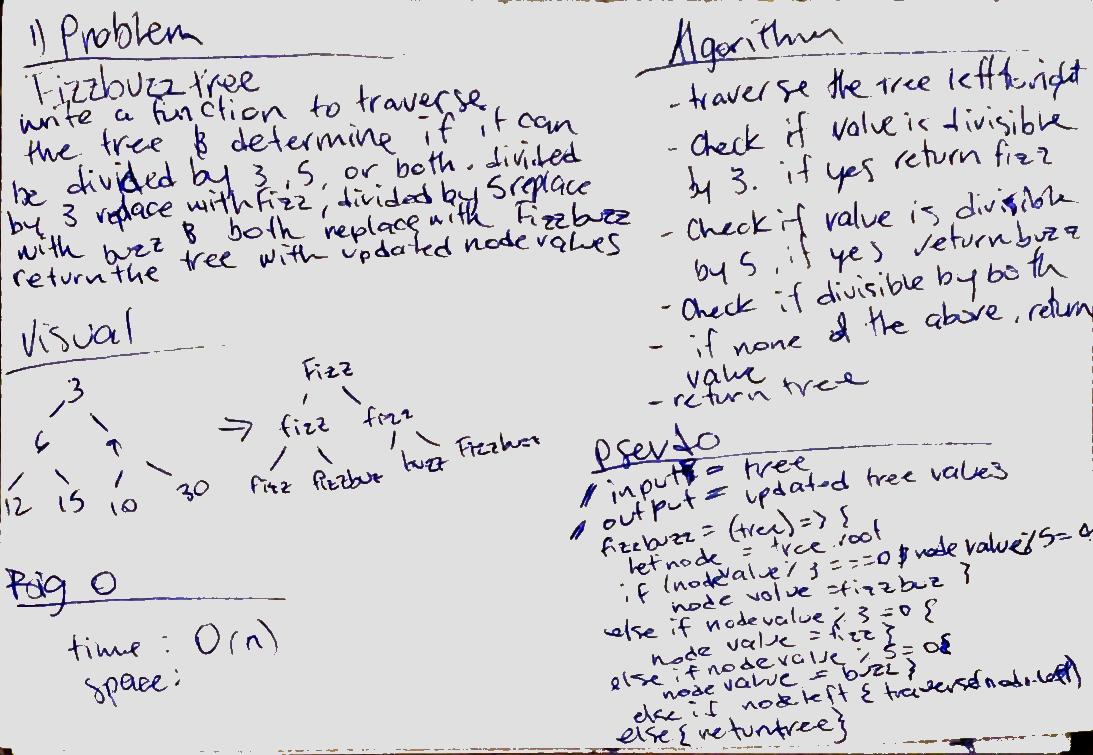 1) Problem
Fizzbuzz tree
write a function to traverse
the tree & determine if it can
be divided by 3, 5, or both. divided
by 3 replace with Fizz, divided by 5 replace
with buzz & both replace with Fizzbuzz
return the tree with updated node values
Visual
3
6
12 15 10 30
=>
Fizz
fizz fizz
fizz fizzbuz buzz Fizzbuzz
Big O
time : O(n)
space:
Algorithm
- traverse the tree left to right
- Check if value is divisible
by 3. if yes return fizz
- Check if value is divisible
by 5, if yes return buzz
- Check if divisible by both
- if none of the above, return
value
- return tree
Pseudo
// input = tree
// output = updated tree values
fizzbuzz = (tree) => {
let node = tree.root
if (node value % 3 === 0 & node value % 5 = 0
node value = fizzbuz }
else if node value % 3 = 0 {
node value = fizz }
else if node value % 5 = 0 {
node value = buzz }
else if node left { traverse(node.left)
else { return tree }